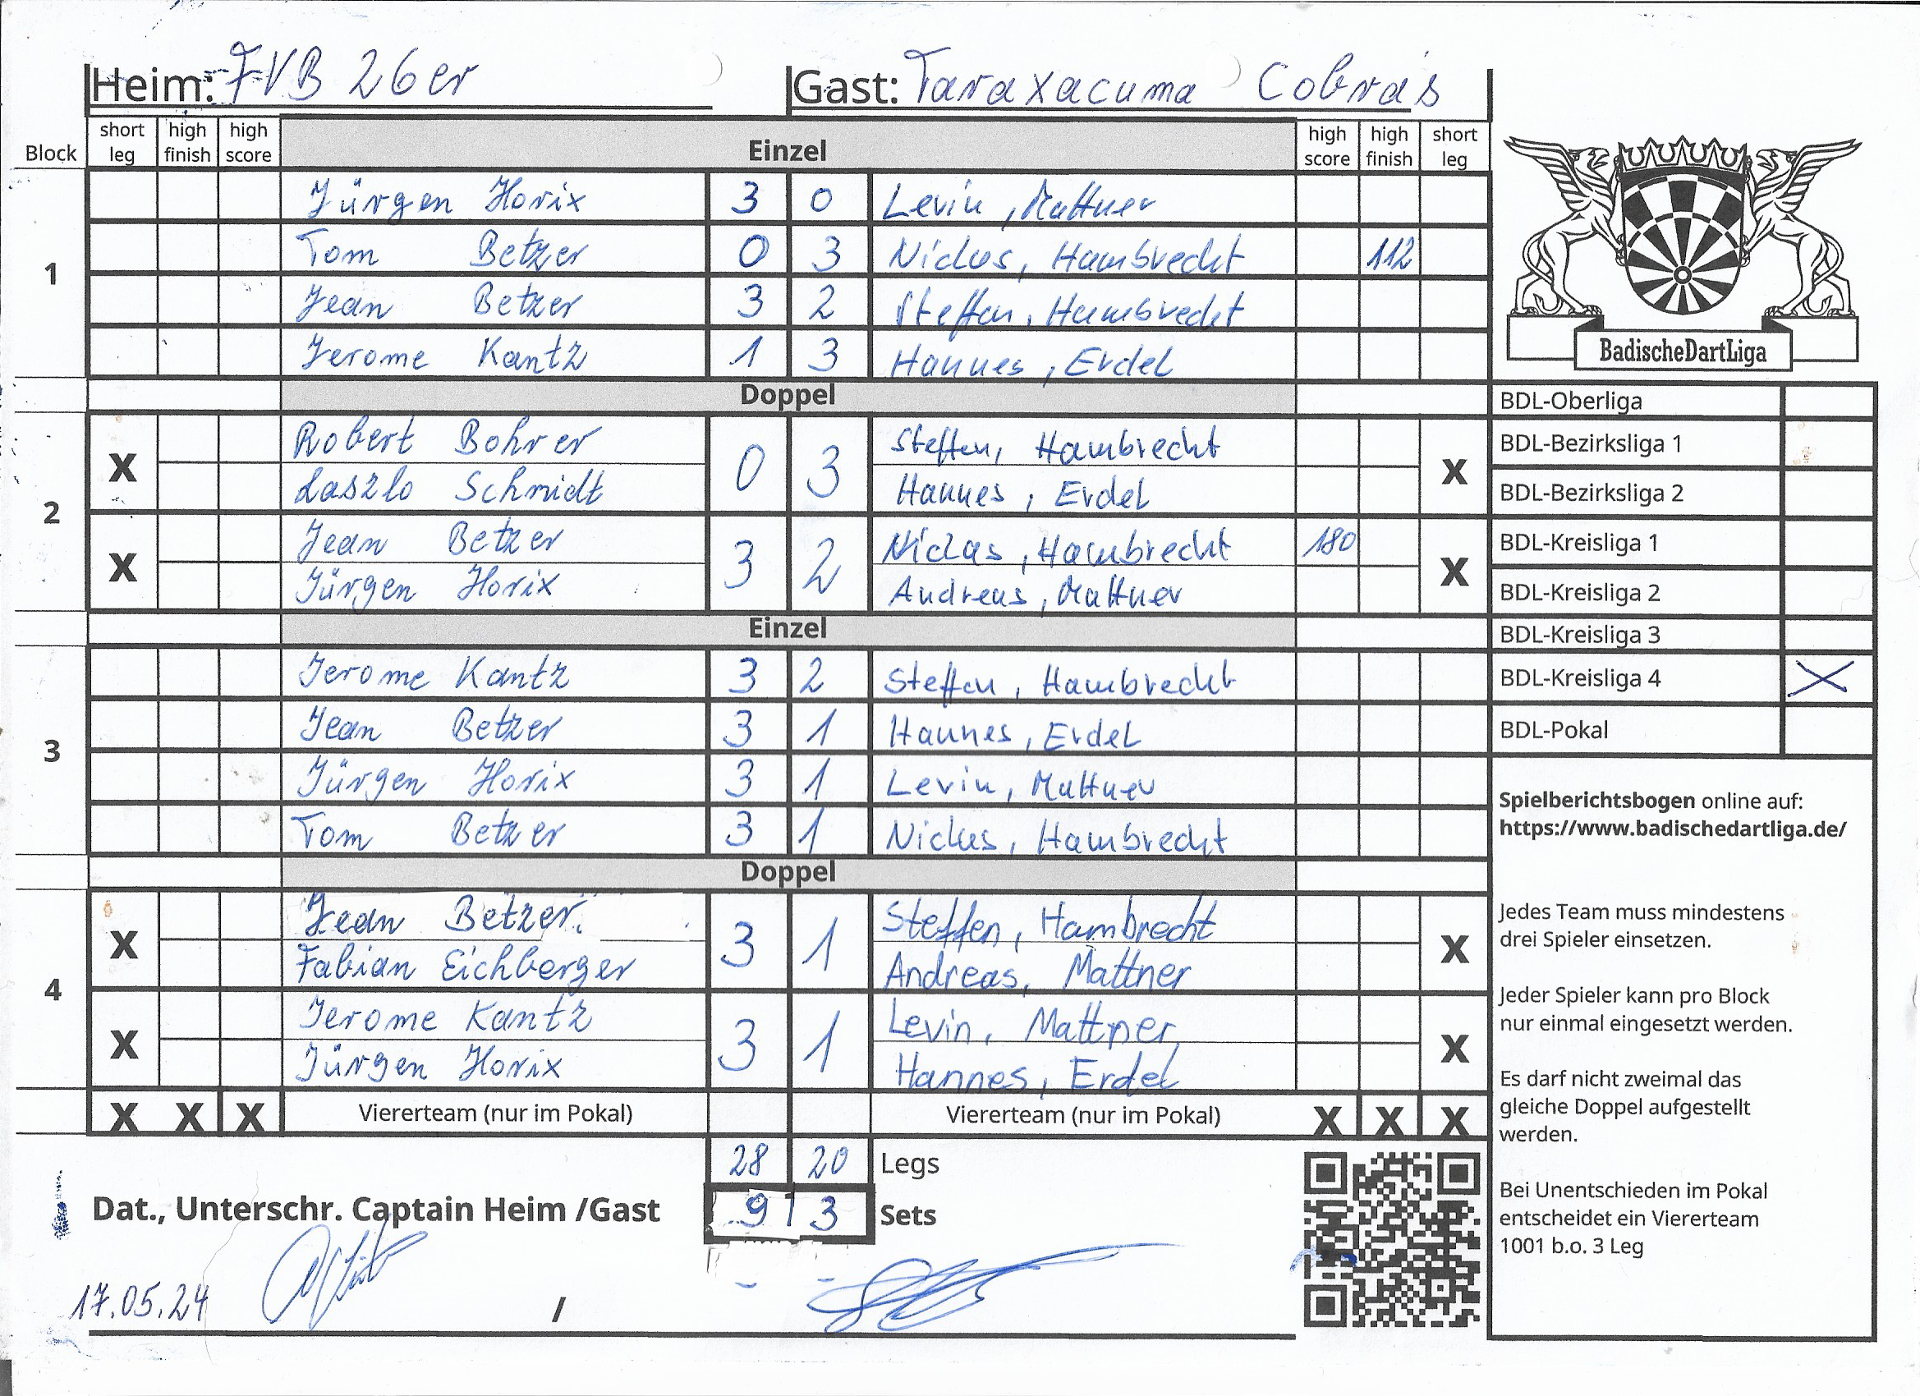 Heim: FVB 26er Gast: Taraxacuma Cobras
Block short leg high finish high score Einzel high score high finish short leg
1
Jürgen Horix 3 0 Levin, Mattner
Tom Betzer 0 3 Niclas, Hambrecht 112
Jean Betzer 3 2 Steffen, Hambrecht
Jerome Kantz 1 3 Hannes, Erdel
BadischeDartLiga
Doppel
2
Robert Bohrer Steffen, Hambrecht
X 0 3 X
Laszlo Schmidt Hannes, Erdel
Jean Betzer Niclas, Hambrecht 180
X 3 2 X
Jürgen Horix Andreas, Mattner
Einzel
3
Jerome Kantz 3 2 Steffen, Hambrecht
Jean Betzer 3 1 Hannes, Erdel
Jürgen Horix 3 1 Levin, Mattner
Tom Betzer 3 1 Niclas, Hambrecht
Doppel
4
Jean Betzer Steffen, Hambrecht
X 3 1 X
Fabian Eichberger Andreas, Mattner
Jerome Kantz Levin, Mattner
X 3 1 X
Jürgen Horix Hannes, Erdel
X X X Viererteam (nur im Pokal) Viererteam (nur im Pokal) X X X
28 20 Legs
Dat., Unterschr. Captain Heim /Gast 9 | 3 Sets
17.05.24 /
BDL-Oberliga
BDL-Bezirksliga 1
BDL-Bezirksliga 2
BDL-Kreisliga 1
BDL-Kreisliga 2
BDL-Kreisliga 3
BDL-Kreisliga 4 X
BDL-Pokal
Spielberichtsbogen online auf:
https://www.badischedartliga.de/
Jedes Team muss mindestens
drei Spieler einsetzen.
Jeder Spieler kann pro Block
nur einmal eingesetzt werden.
Es darf nicht zweimal das
gleiche Doppel aufgestellt
werden.
Bei Unentschieden im Pokal
entscheidet ein Viererteam
1001 b.o. 3 Leg